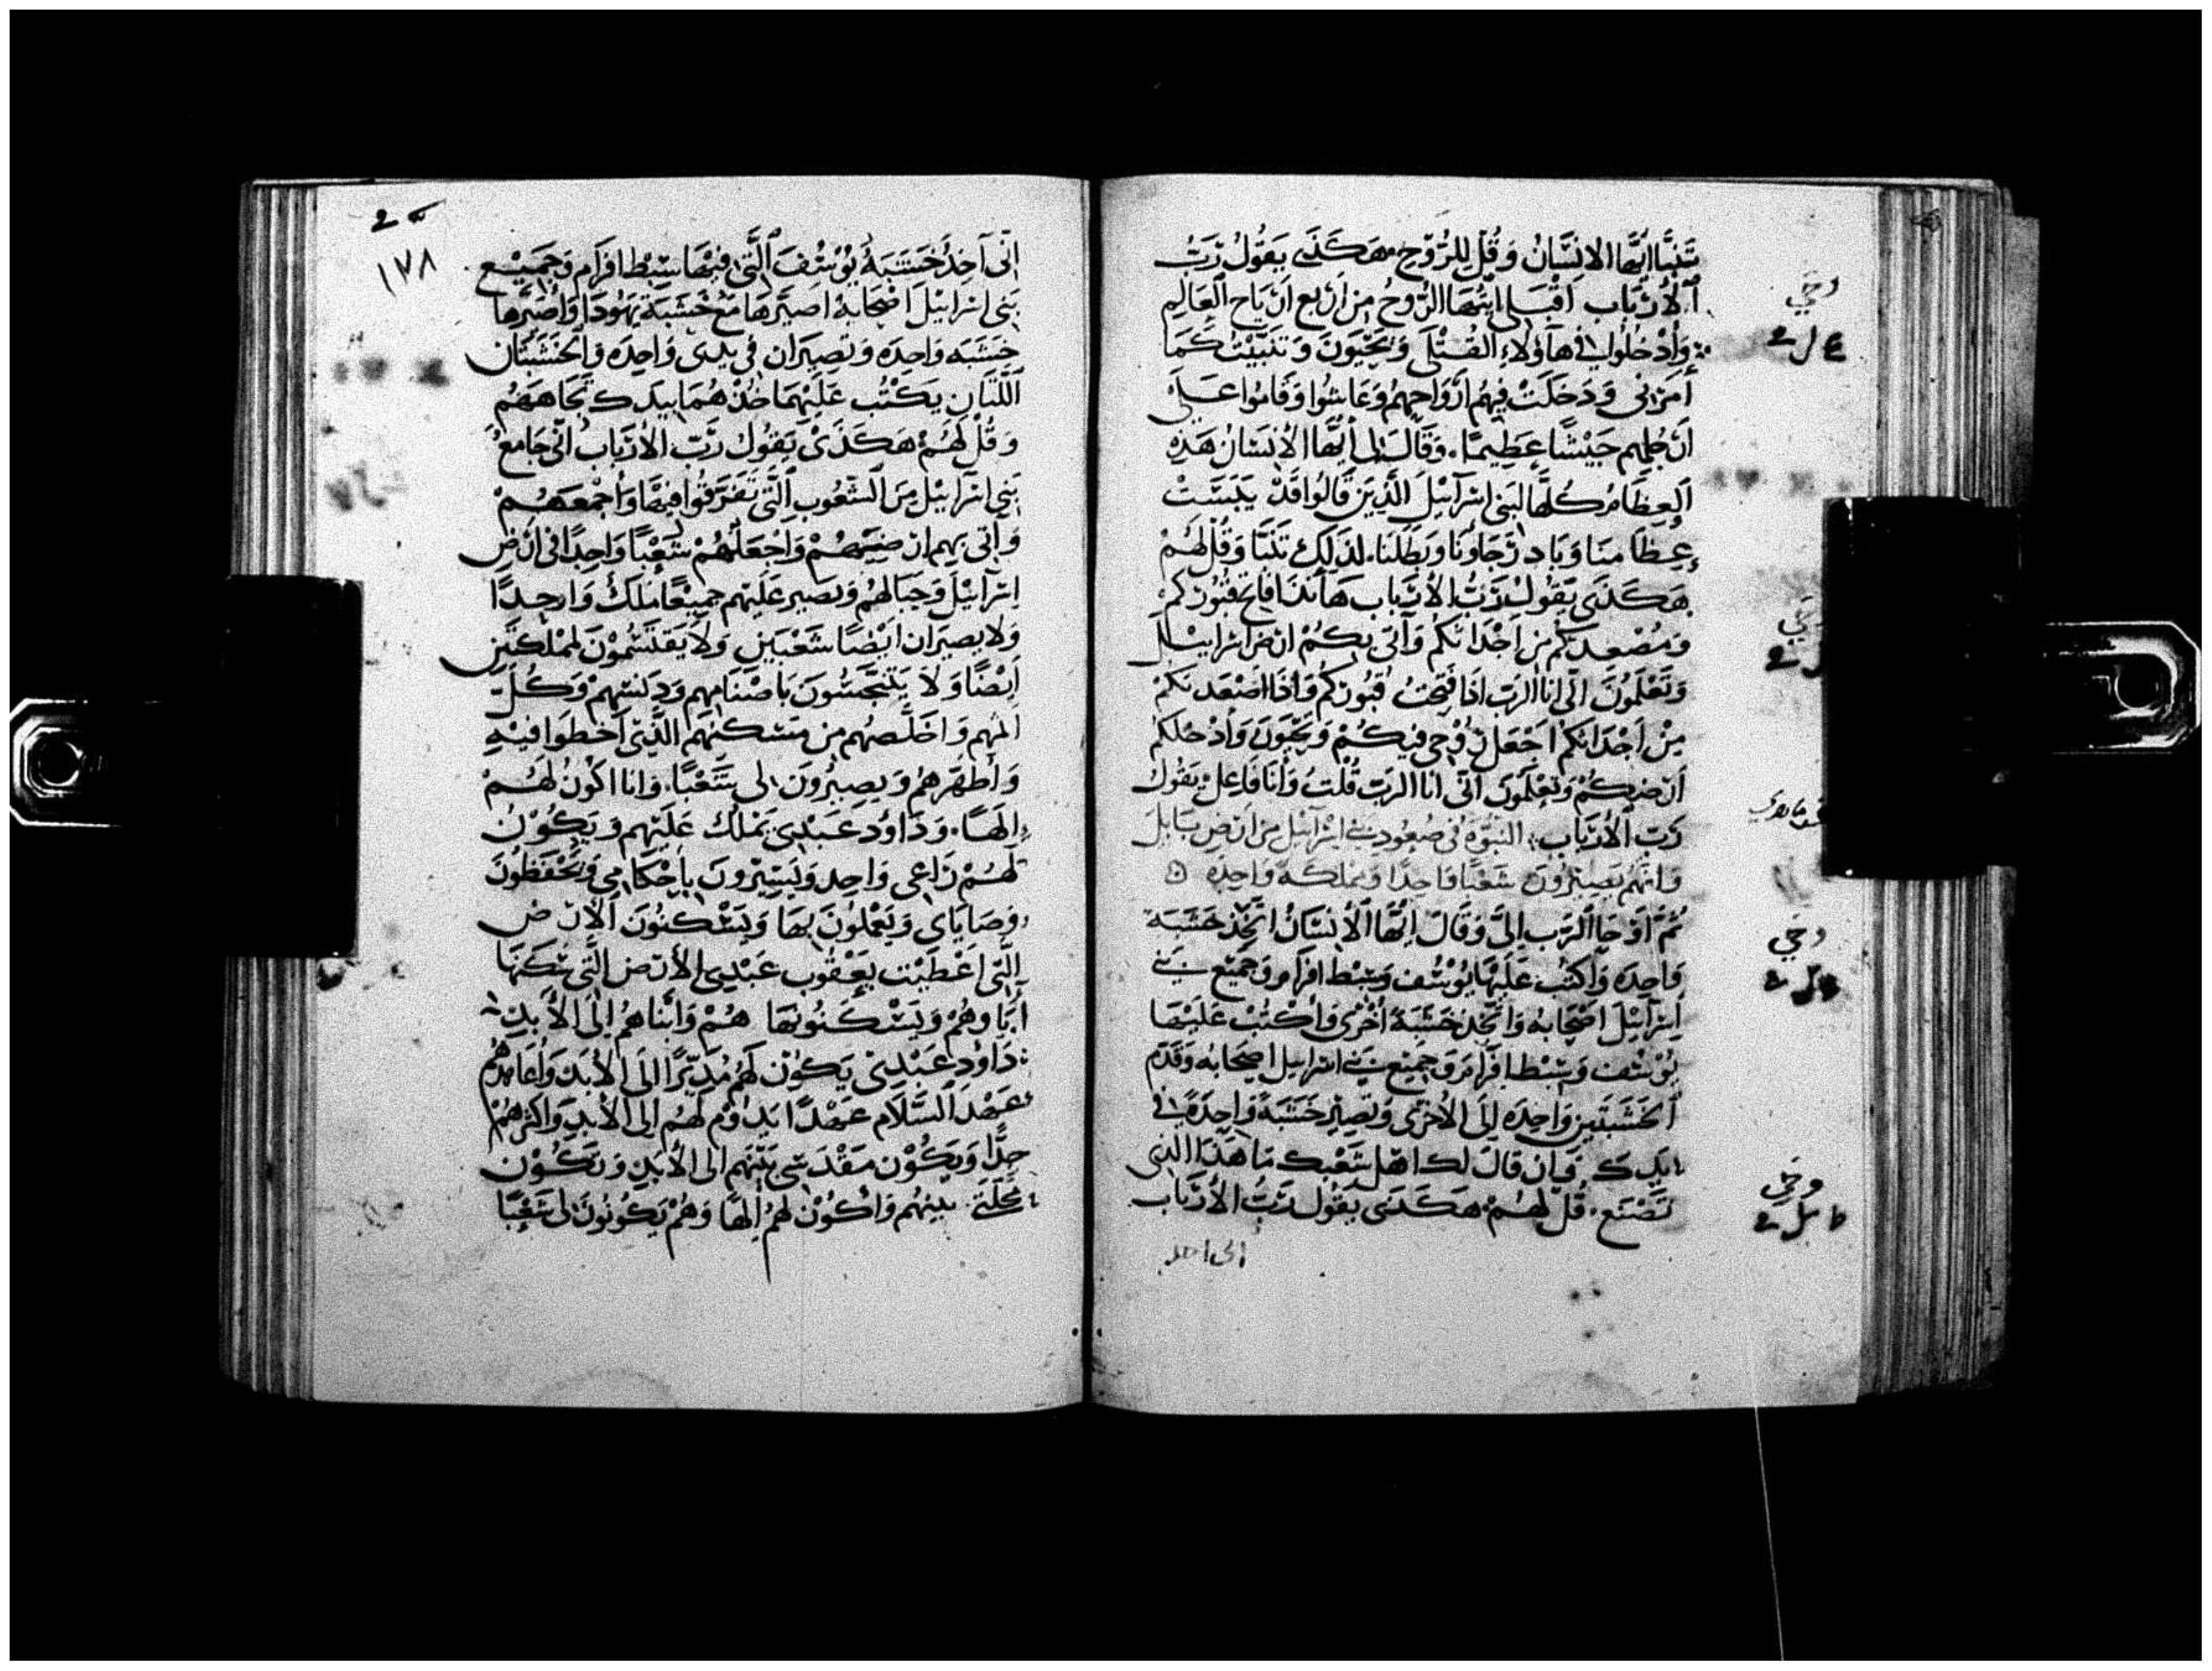 تَنَبَّا ايُّها الانسَانُ وَقُل لِلرُّوح هَكَذَى يَقُولُ رَبُّ
الأربَاب اقبَلى ايتُهَا الرُّوحُ مِن اَربع اَريَاح العَالِم
وَادْخُلُوا فى هَاوُلاءِ القَتْلَى وَيَحْيَونَ وَتَنَبَّيْتُ كَمَا
اَمَرَنى وَدَخَلَتْ فِيهُم اَرْوَاحهُم وَعَاشُوا وَقَامُوا عَلَى
اَرجُلِهم جَيْشًا عَظِيمًا. وَقَالَ لى ايُّها الانسَانُ هَذِه
العِظَامُ كُلُّهَا لبَنى اسرَآئيلَ الَّذِينَ قَالُوا قَدْ يَبَسَتْ
عِظَامنَا وَبَادَ رَجَاونَا وَبَطَلنَا. لذَلِكَ تَنَبَّا وَقُل لَهُمْ
هَكَذَى يَقُولُ رَبُّ الأربَاب هَانَذَا فَاتِح قبُورَكم
وَمُصْعدكُم من اجْدَاثكُم وَآتى بكُمْ ارضَ اسرَائيل
وَتَعْلَمُونَ انّى انَا الرَبّ اذَا فَتَحتُ قبُورَكُم وَاذَا اصْعَدتكُمْ
مِنْ اَجْدَاثكُم اجْعَل رُوْحِى فيكُمْ وَتَحْيَونَ وَادْخلكُم
اَرْضكُمْ وَتَعْلَمُونَ انّى انَا الرَبّ قُلْتُ وَأنَا فَاعِلٌ يَقُولُ
رَبّ الأربَاب. النبُوّة فى صُعُود بنى اسْرَآئيل من اَرض بَابلَ
وَانّهُم يَصِيرُونَ شَعْبًا وَاحِدًا وَمَملكَة وَاحِدَه
ثُمَّ اوْحَا الرَّب اِلىَّ وَقَالَ ايُّهَا الانسَانُ اتَّخِذ خَشَبَة
وَاحِدَه وَاكتُب عَلَيْهَا يُوْسُف وَسِبْط افرَام وَجَمِيْع بَنى
اسرَآئيْل اصْحَابهُ وَاتَّخِذ خَشَبَةً اُخْرَى وَاكْتُبْ عَلَيْهَا
يُوْسُف وَسِبْط افرَام وَجَمِيْع بَنى اسرَائيل اصْحَابه وَقَدِّم
الخَشَبَتَين وَاحِدَه اِلَى الأخرَى وَتَصِيْر خَشَبَةً وَاحِدَةً فى
يَدِكَ وَان قَالَ لكَ اهْل شَعْبكَ مَا هَذَا الذى
تَصْنَع. قُلْ لَهُمْ هَكَذَى يَقُولُ رَبُّ الأربَاب
وحى
وحى
وحى
١٧٨
انّى آخِذ خَشَبَةُ يُوْسُفَ الَّتى فِيْهَا سِبْطُ افرَام وَجَمِيْع
بَنى اسرَائيلَ اصْحَابهُ اصَيِّرهَا مَعْ خَشَبَة يَهُوْدَا وَاُصَيّرهَا
خَشَبَه وَاحِدَه وَتَصِيرَان فى يَدِىْ وَاحِدَه وَالخَشَبَتَان
اللَّتَان يَكْتُب عَلَيْهمَا خُذْهُمَا بيَدِكَ تجَاهَهُم
وَقُل لَهُمْ هَكَذَىْ يَقُولُ رَبّ الأربَاب انّى جَامعُ
بَنى اسرَآئيْل مِنَ الشّعُوب الَّتى تَفَرَّقُوا فِيْهَا وَاجْمَعَهُمْ
وَاتى بهِم ارضِيَهُمْ وَاجْعَلهُمْ شَعْبًا وَاحِدًا فى اَرْض
اسْرَآئيْلَ وَجبَالهُم وَيَصِير عَلَيْهم جَمِيعًا مَلكْ وَاحِدًا
وَلَا يَصِيرَان ايْضًا شَعْبَين وَلا يَقتَسَمُوْنَ لمَمْلكَتَين
اَيْضًا وَلَا يَتَنَجَّسُونَ بَاصْنَامهم وَدَنَسهمْ وَكُلّ
اثمهم وَاخَلّصهُم من مَسْكنهم الَّذِى اَخْطَوا فيْهِ
وَاُطَهّرهُمُ وَيَصِيرُونَ لى شَعْبًا. وَانَا اكُونُ لَهُمْ
الهًا. وَدَاوُد عَبْدِى يَمْلكُ عَلَيْهم وَيَكُوْن
لَهُمْ رَاعى وَاحِد وَيَسِيْرُونَ بِاحْكَامِى وَيَحْفَظُونَ
وَصَايَاى وَيَعْمَلُونَ بهَا وَيَسْكنُونَ الأرض
الَّتى اعْطَيْت يَعْقُوب عَبْدِى الأرْض الَّتى سَكَنَهَا
ابَاوهُمْ وَيَسْكنُونهَا هُمْ وَابْنَاهُم اِلَى الأبَد
دَاوُد عَبْدِىْ يَكُوْن لَهُم مُدَبّرًا الَى الأبَد وَاُعَاهدهُم
عَهْد السَّلَام عَهْدًا يَدُوْم لَهُم الى الأبَد وَاكثرهُمْ
جِدًّا وَيَكُوْن مَقْدَسِى بَيْنَهم الى الأبَد وَتَكُوْن
مَحَلَّتى بينهُم وَاكُوْن لهُمُ الهًا وَهُمْ يَكُوْنُونَ لى شَعْبًا